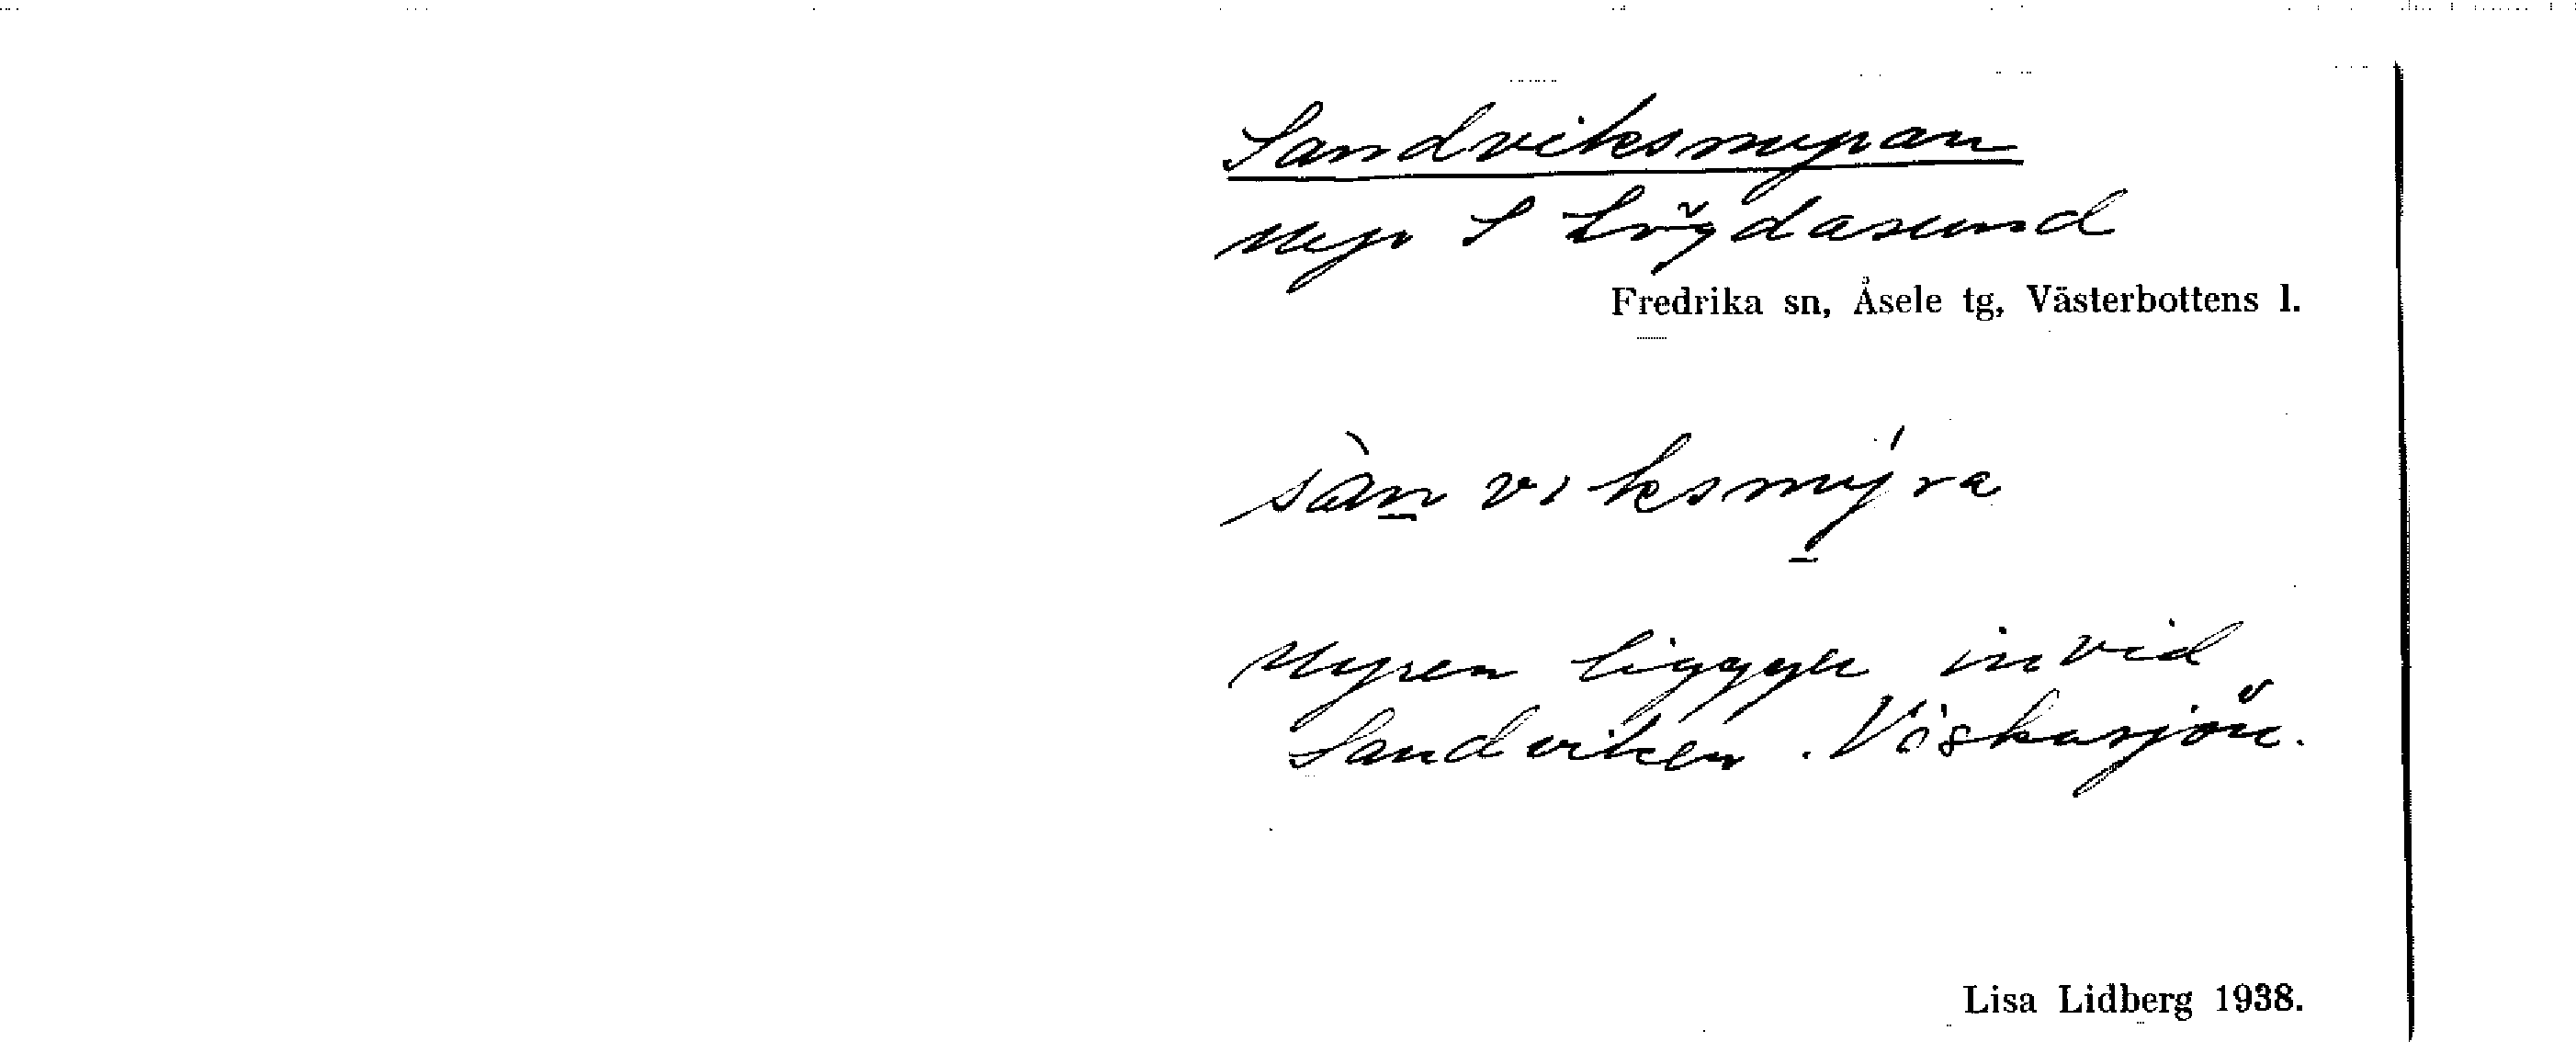 Sandviksmyran
Myr S Lögdasund
Fredrika sn, Åsele tg, Västerbottens l.
sàn viksmýra
Myren ligger invid
Sandviken. Viskasjön.
Lisa Lidberg 1938.